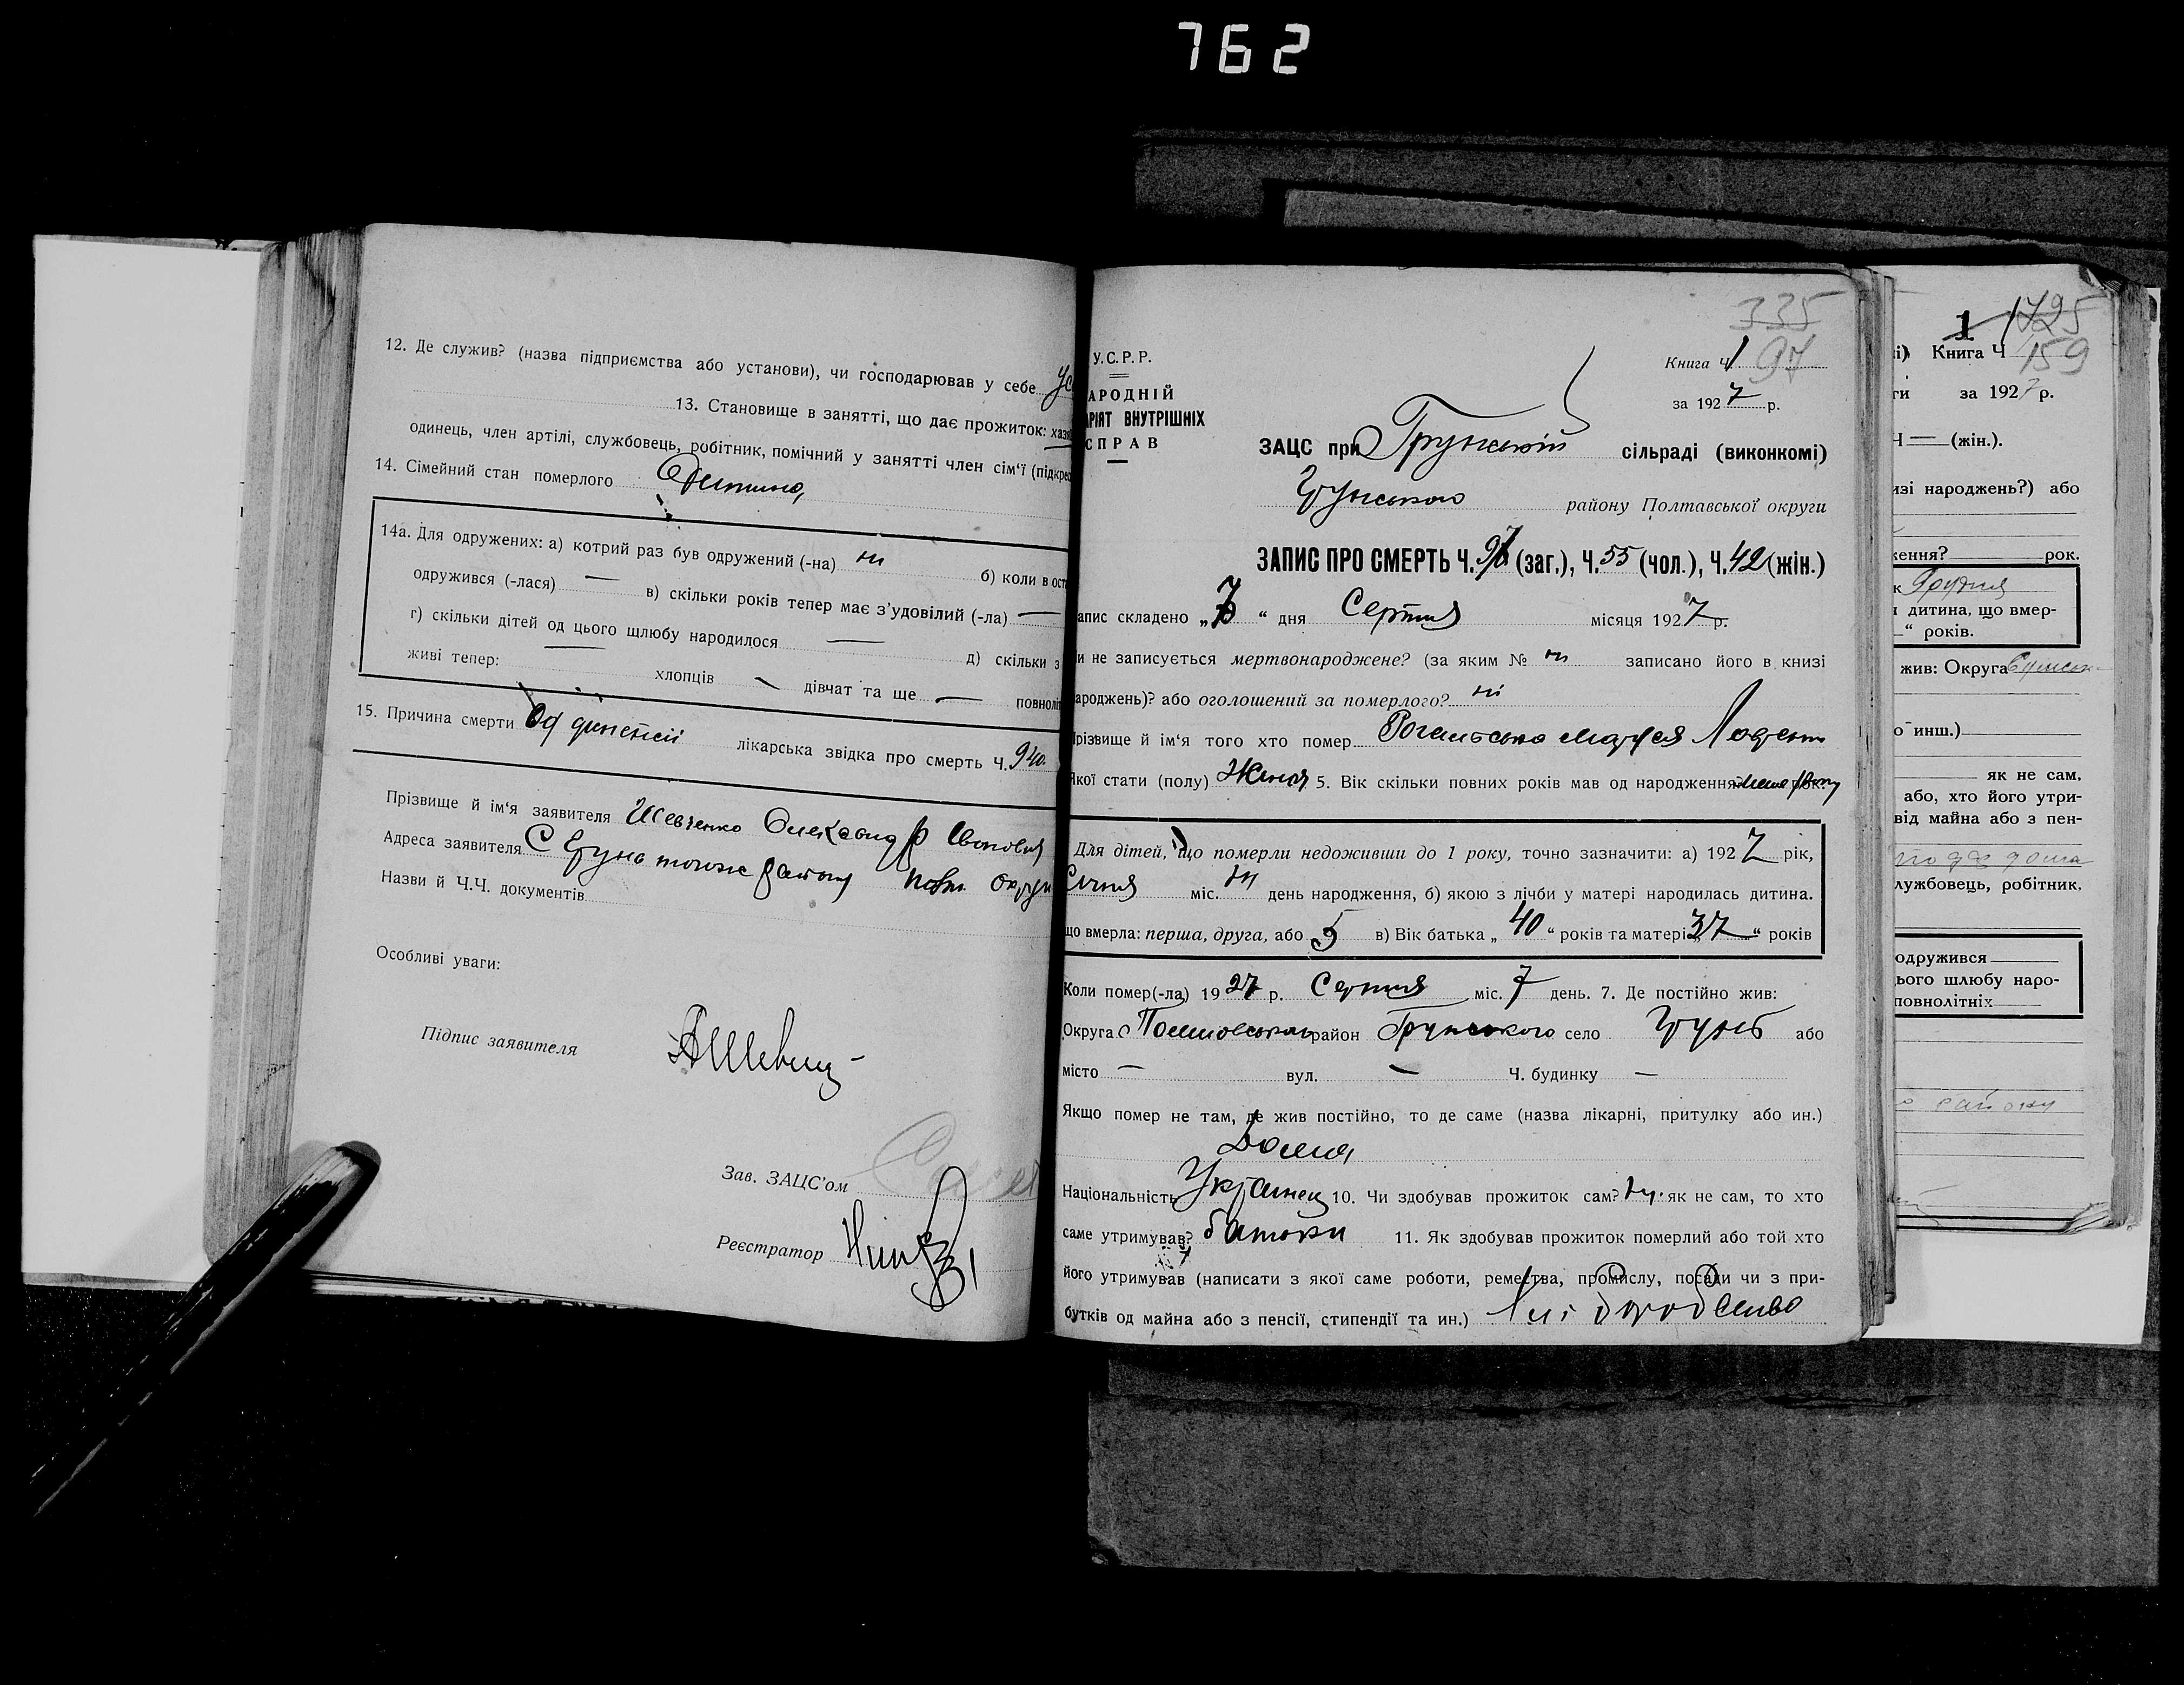 762
12. Де служив? (назва підприємства або установи), чи господарював у себе
13. Становище в занятті, що дає прожиток: хазя
одинець, член артілі, службовець, робітник, помічний у занятті член сім'ї (підкрес
14. Сімейний стан померлого Дитина
14а. Для одружених: а) котрий раз був одружений (-на) ні б) коли в ост
одружився (-лася) — в) скільки років тепер має з'удовілий (-ла) —
г) скільки дітей од цього шлюбу народилося — д) скільки з
живі тепер: — хлопців — дівчат та ще — повноліт
15. Причина смерти Од лікарська звідка про смерть Ч.
Прізвище й ім'я заявителя Шевченко
Адреса заявителя С Грунь того ж району Полт. округи
Назви й Ч.Ч. документів
Особливі уваги:
Підпис заявителя
Зав. ЗАЦС'ом
Реєстратор
335
У.С.Р.Р.
Книга Ч 1 97
АРОДНІЙ
АРІЯТ ВНУТРІШНІХ
СПРАВ
за 1927 р.
ЗАЦС при Грунській сільраді (виконкомі)
Грунського району Полтавської округи
ЗАПИС ПРО СМЕРТЬ Ч. 97 (заг.), Ч. 55 (чол.), Ч. 42 (жін.)
апис складено „7“ дня Серпня місяця 1927 р.
и не записується мертвонароджене? (за яким № ні записано його в книзі
ароджень)? або оголошений за померлого? ні
Прізвище й ім'я того хто помер Маруся
Якої стати (полу) Жіноч 5. Вік скільки повних років мав од народження менш року
Для дітей, що померли недоживши до 1 року, точно зазначити: а) 1927 рік,
Січня міс. день народження, б) якою з лічби у матері народилась дитина.
що вмерла: перша, друга, або 5 в) Вік батька „40“ років та матері „37“ років
Коли помер(-ла) 1927 р. Серпня міс. 7 день. 7. Де постійно жив:
Округа Полтавська район Грунського село Грунь або
місто — вул. — Ч. будинку —
Якщо помер не там, де жив постійно, то де саме (назва лікарні, притулку або ин.)
Дома
Національність Українец 10. Чи здобував прожиток сам? ні як не сам, то хто
саме утримував? батьки 11. Як здобував прожиток померлий або той хто
його утримував (написати з якої саме роботи, ремества, промислу, посади чи з при-
бутків од майна або з пенсії, стипендії та ин.) Хліборобство
1 1725
і) Книга Ч 159
ти за 1927 р.
Ч — (жін.).
изі народжень?) або
ження? рок.
к Грудня
дитина, що вмер-
—“ років.
жив: Округа
о инш.)
як не сам,
або, хто його утри-
від майна або з пен-
лужбовець, робітник,
одружився
ього шлюбу наро-
повнолітніх
району